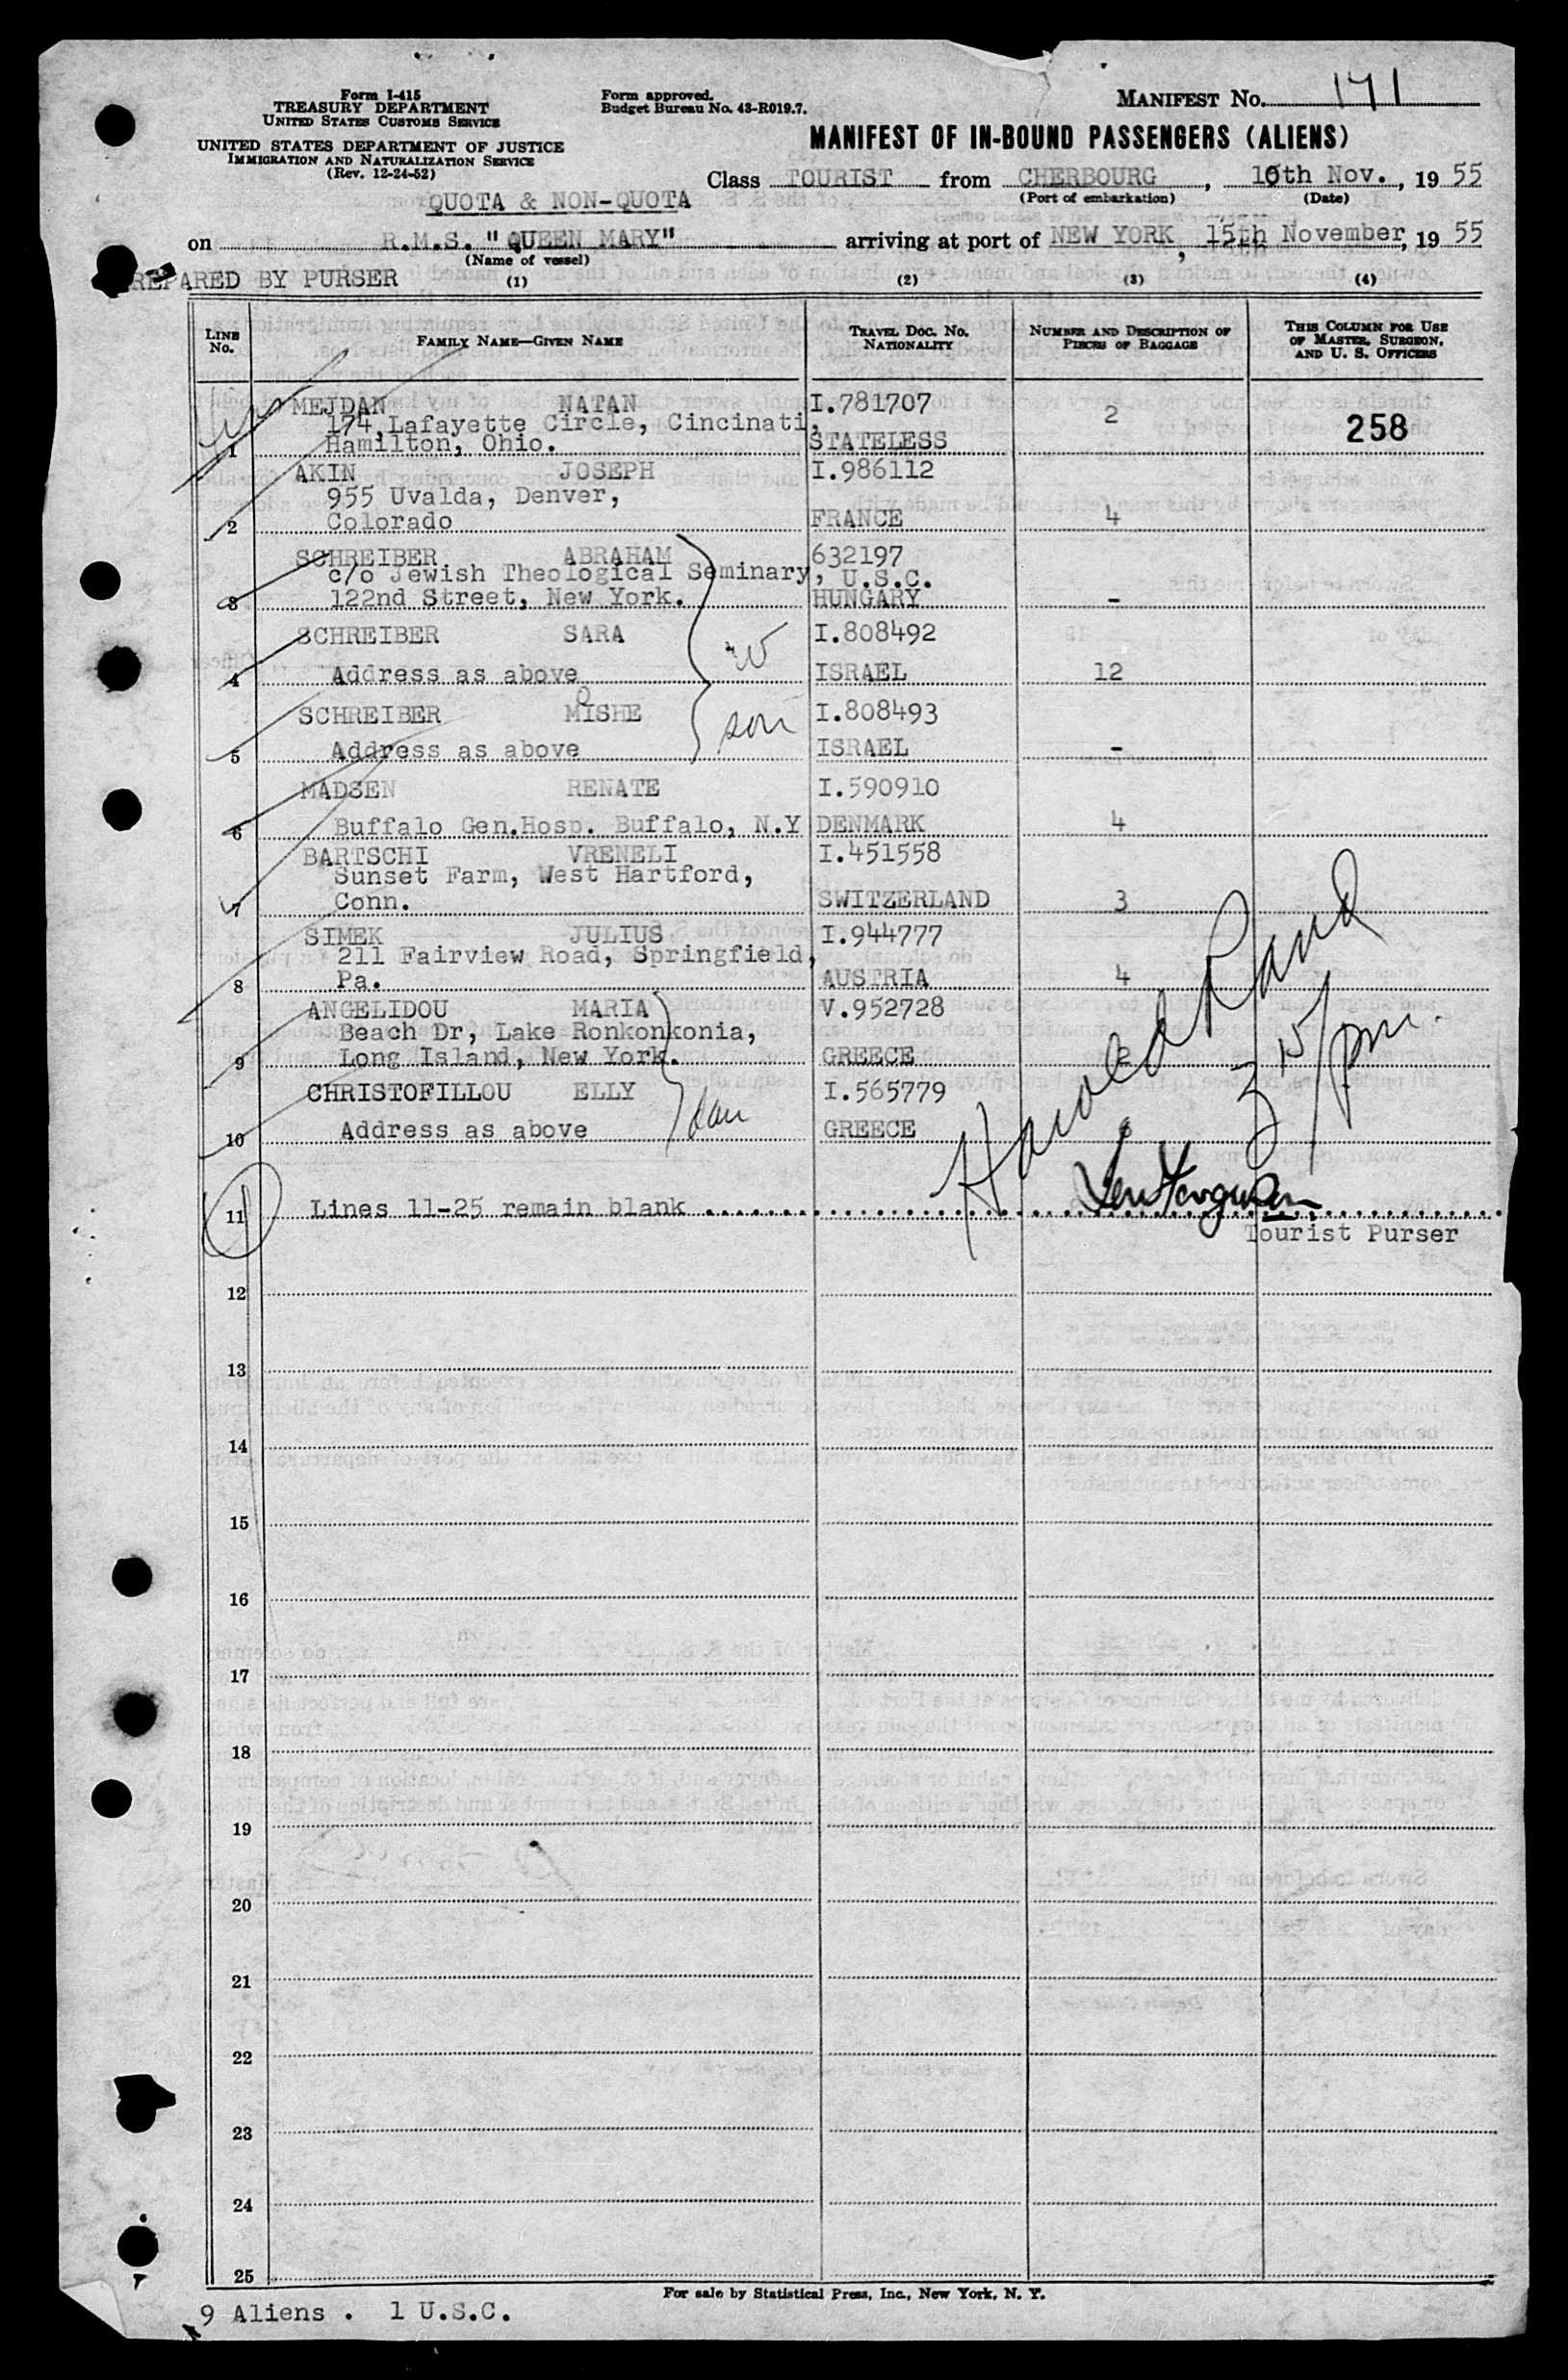 Form I-415
TREASURY DEPARTMENT
UNITED STATES CUSTOMS SERVICE
UNITED STATES DEPARTMENT OF JUSTICE
IMMIGRATION AND NATURALIZATION SERVICE
(Rev. 12-24-52)
Form approved.
Budget Bureau No. 43-R019.7.
MANIFEST No. 171
MANIFEST OF IN-BOUND PASSENGERS (ALIENS)
Class TOURIST from CHERBOURG, 10th Nov., 1955
(Port of embarkation) (Date)
QUOTA & NON-QUOTA
on R.M.S. "QUEEN MARY" arriving at port of NEW YORK, 15th November, 1955
(Name of vessel)
PREPARED BY PURSER
(1) (2) (3) (4)
LINE No. FAMILY NAME—GIVEN NAME TRAVEL DOC. NO. NATIONALITY NUMBER AND DESCRIPTION OF PIECES OF BAGGAGE THIS COLUMN FOR USE OF MASTER, SURGEON, AND U. S. OFFICERS
MEJDAN NATAN I.781707
174, Lafayette Circle, Cincinati, 2 258
1 Hamilton, Ohio. STATELESS
AKIN JOSEPH I.986112
955 Uvalda, Denver,
2 Colorado FRANCE 4
SCHREIBER ABRAHAM 632197
c/o Jewish Theological Seminary, U.S.C.
3 122nd Street, New York. HUNGARY -
SCHREIBER SARA I.808492
w
4 Address as above ISRAEL 12
O
SCHREIBER MISHE I.808493
son
5 Address as above ISRAEL -
MADSEN RENATE I.590910
6 Buffalo Gen.Hosp. Buffalo, N.Y DENMARK 4
BARTSCHI VRENELI I.451558
Sunset Farm, West Hartford,
7 Conn. SWITZERLAND 3
SIMEK JULIUS I.944777
211 Fairview Road, Springfield,
8 Pa. AUSTRIA 4
ANGELIDOU MARIA V.952728
Beach Dr, Lake Ronkonkonia,
9 Long Island, New York. GREECE 2
CHRISTOFILLOU ELLY I.565779
dau
10 Address as above GREECE
Harold Rand
3 15/pm.
11 Lines 11-25 remain blank
Len Ferguson
Tourist Purser
12
13
14
15
16
17
18
19
20
21
22
23
24
25
For sale by Statistical Press, Inc., New York, N. Y.
9 Aliens . 1 U.S.C.